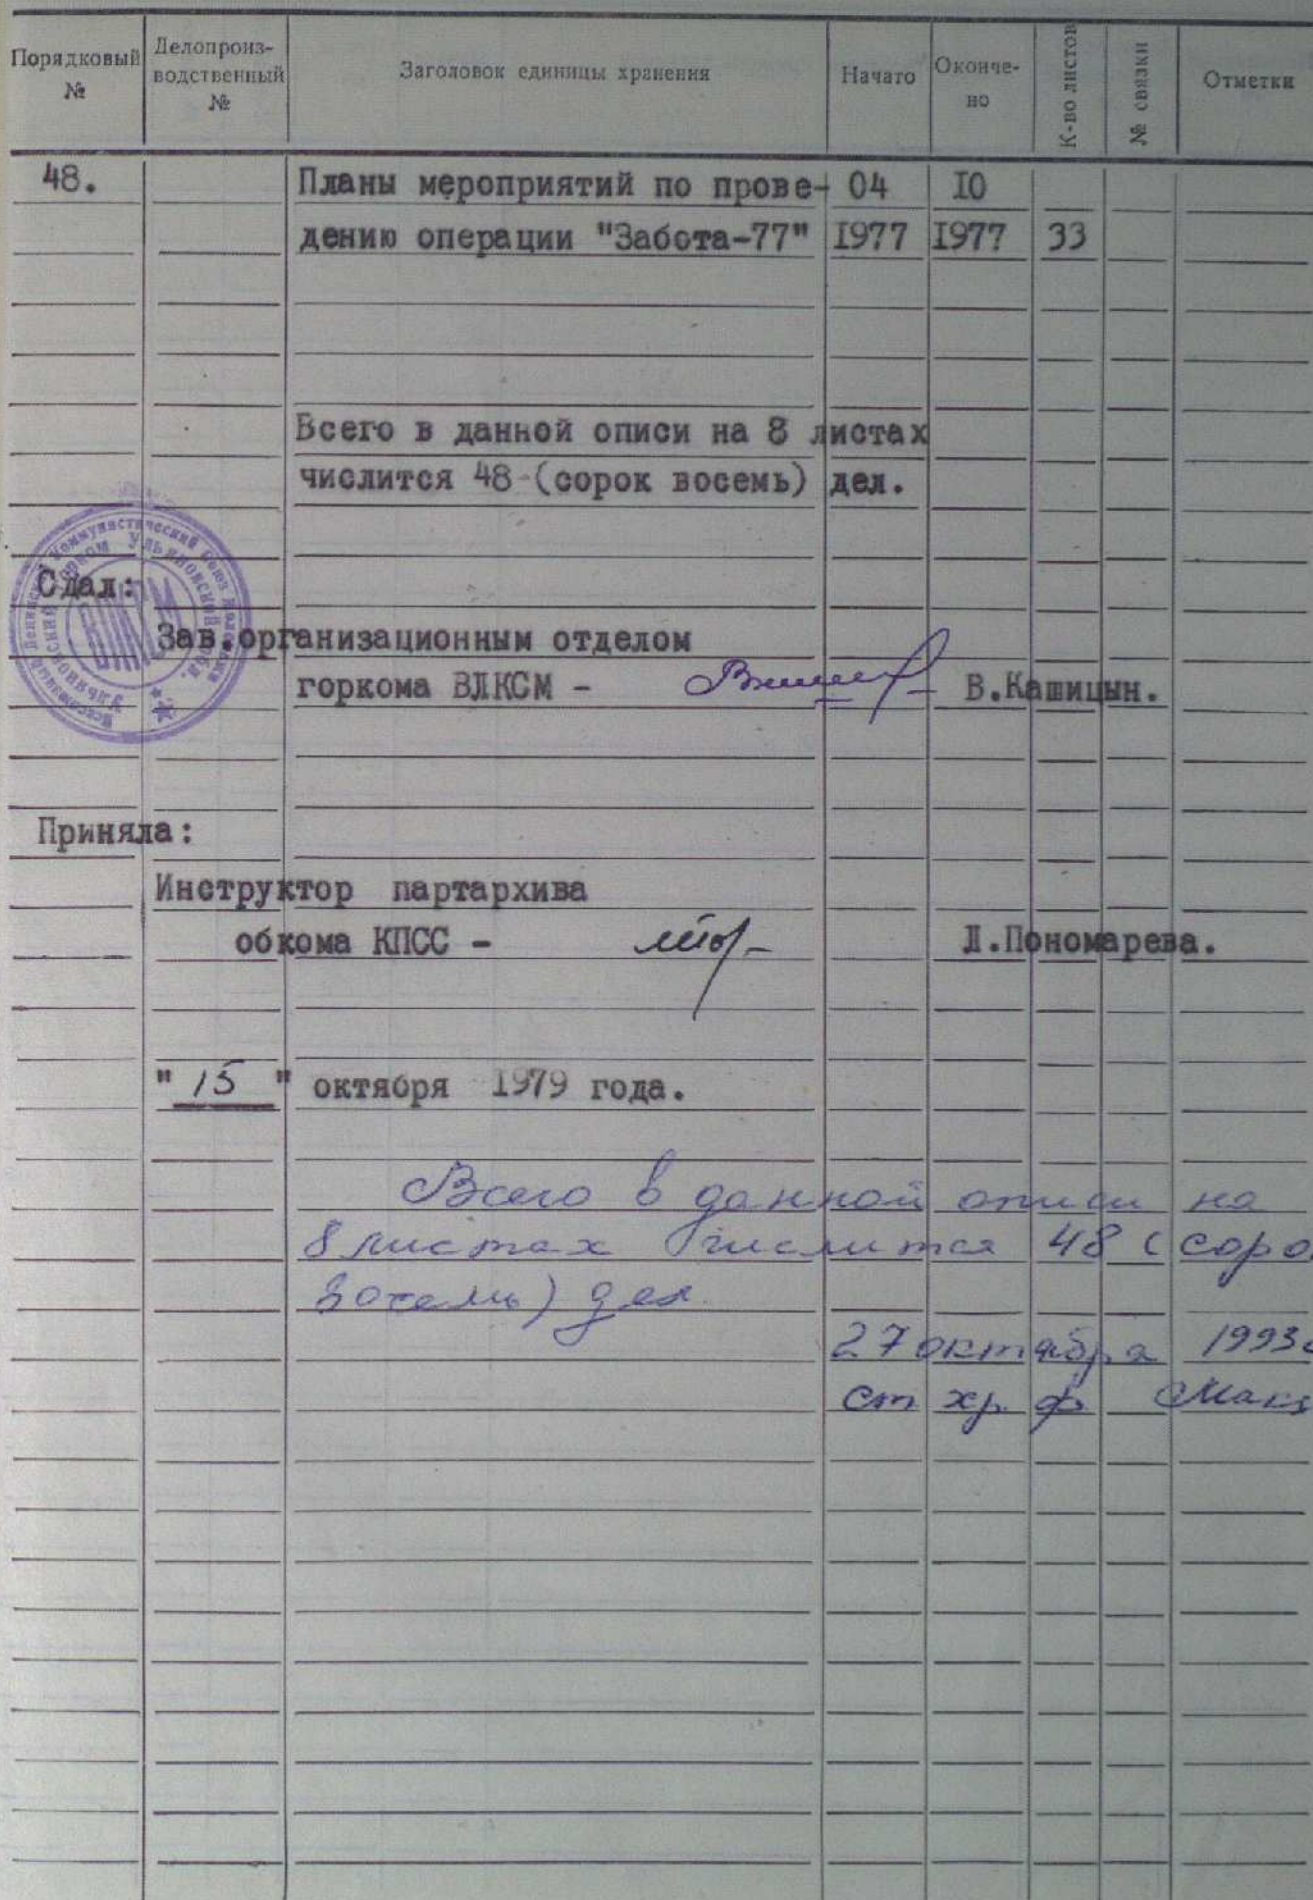 Порядковый № Делопроиз-водственный № Заголовок единицы хранения Начато Окончено К-во листов № связки Отметки
48. Планы мероприятий по прове- 04 I0
дению операции "Забота-77" I977 I977 33
Всего в данной описи на 8 листах
числится 48 (сорок восемь) дел.
Сдал:
Зав.организационным отделом
горкома ВЛКСМ - В.Кашицын.
Приняла:
Инструктор партархива
обкома КПСС - Л.Пономарева.
" 15 " октября I979 года.
Всего в данной описи на
8 листах числится 48 (соро
восемь) дел.
27 октября 1993г
ст хр. ф